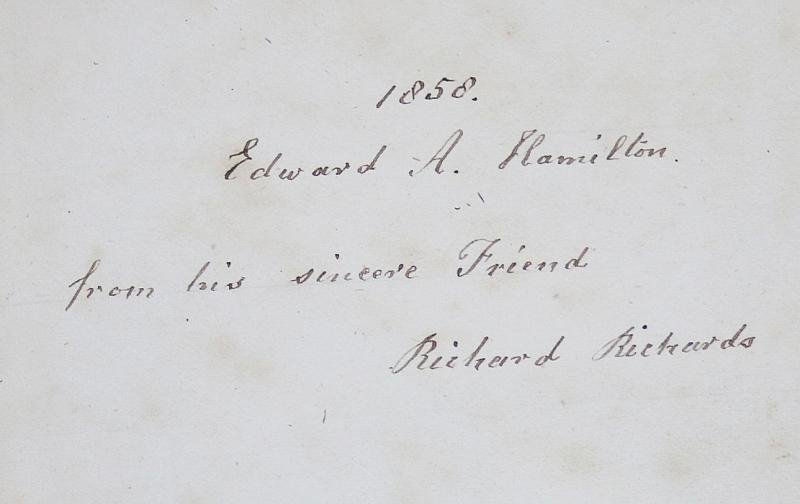 1858.
Edward A. Hamilton.
from his sincere Friend
Richard Richards